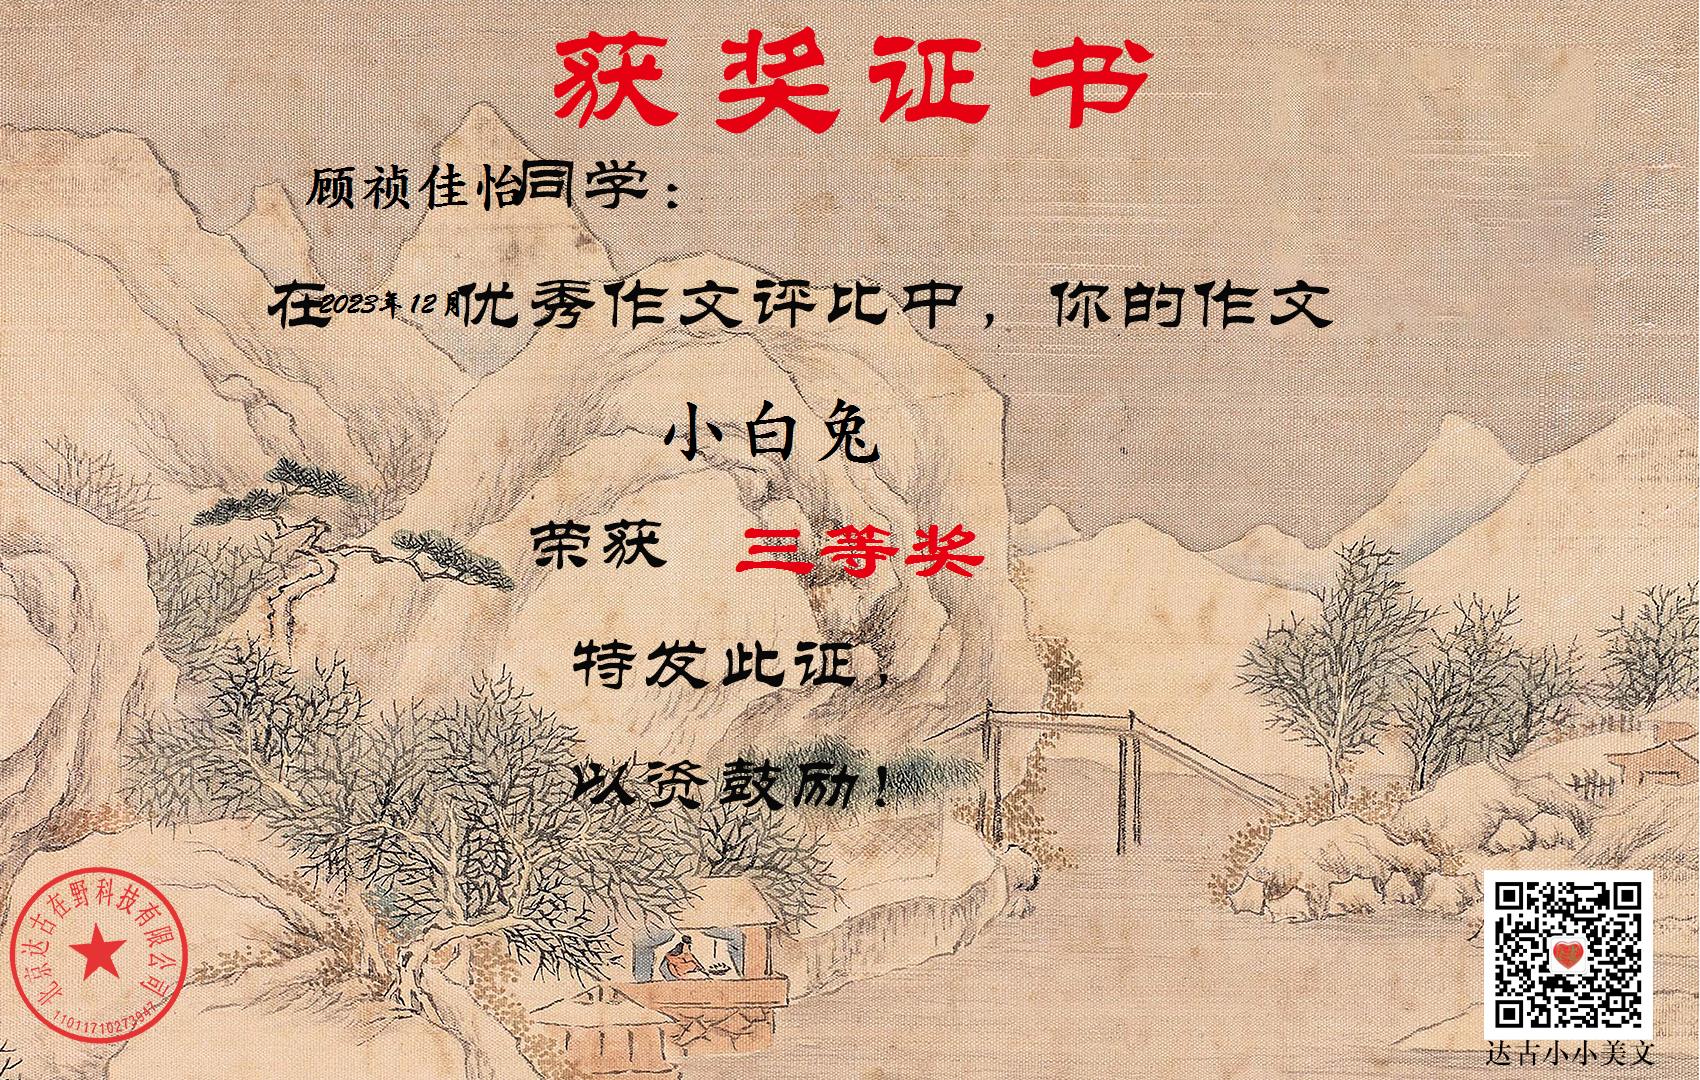 获奖证书
顾祯佳怡同学：
在2023年12月优秀作文评比中，你的作文
小白兔
荣获 三等奖
特发此证，
以资鼓励！
北京达古在野科技有限公司
11011710273947
达古小小美文